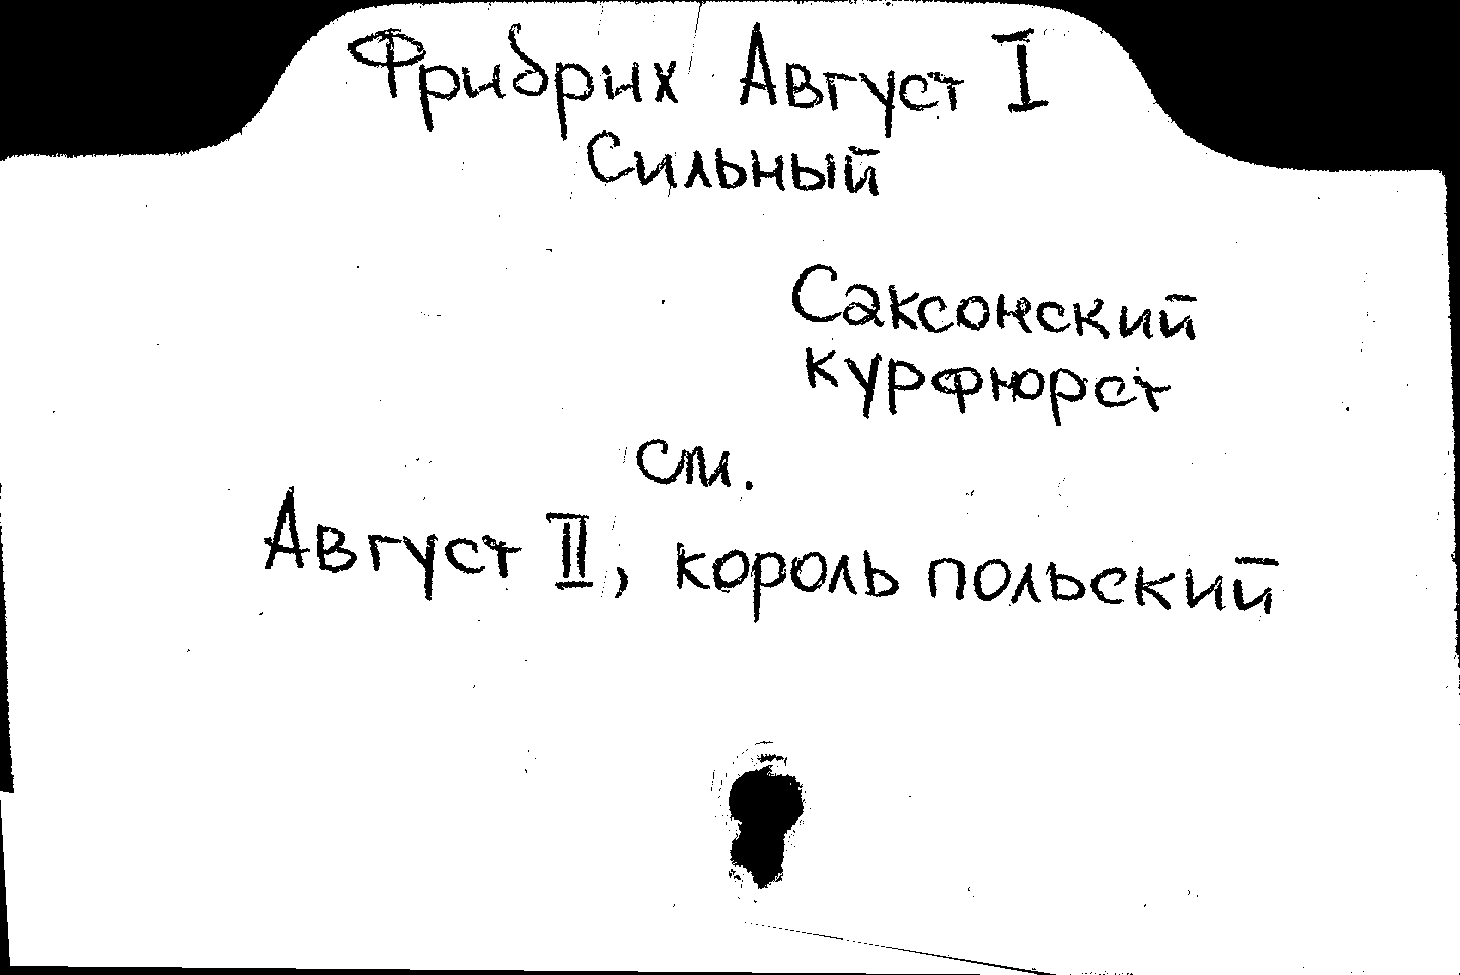 Фридрих Август I
Сильный
Саксонский
курфюрст
см.
Август II, король польский